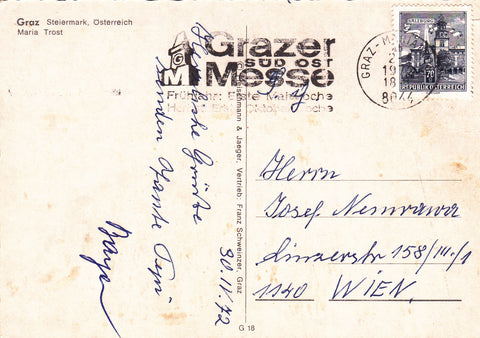 Graz Steiermark, Österreich
Maria Trost
Grazer
SÜD OST
Messe
Frühjahr: Erste Maiwoche
GRAZ-
8044
SALZBURG
70
REPUBLIK ÖSTERREICH
Herzliche Grüße
senden Tante Pepi
30.IV.72
& Jaeger, Vertrieb: Franz Schweinzer, Graz
G 18
Herrn
Josef Nemrawa
Linzerstr 158/III/1
1140 WIEN.